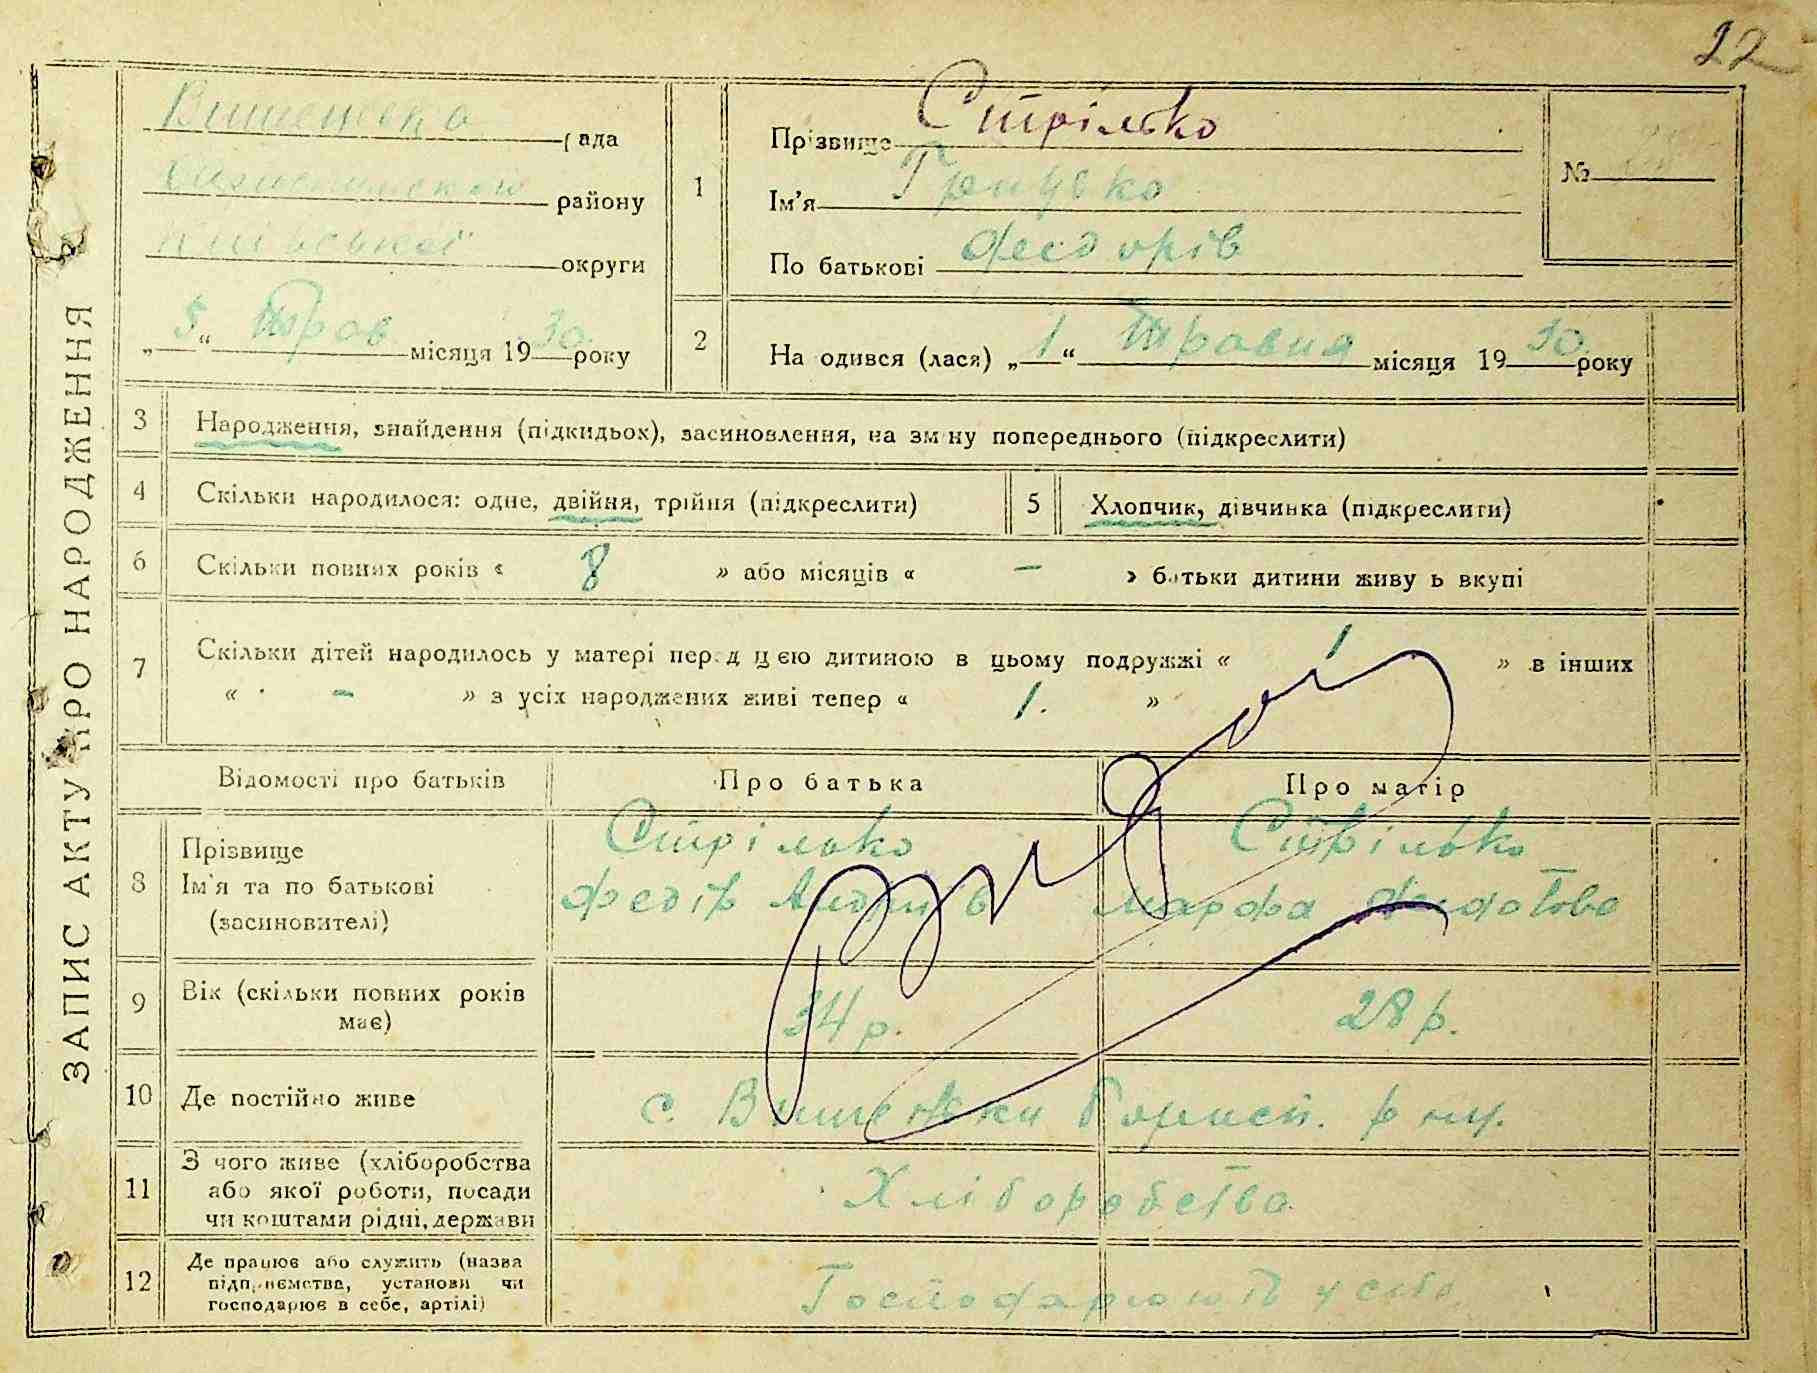 22
ЗАПИС АКТУ ПРО НАРОДЖЕННЯ
Вишенська рада
району
Київської округи
„5“ Трав місяця 1930 року
1
Прізвище Стрілько
Ім'я Грицько
По батькові Федорів
№
2
Народився (лася) „1“ Травня місяця 1930 року
3
Народження, знайдення (підкидьох), засиновлення, на зміну попереднього (підкреслити)
4
Скільки народилося: одне, двійня, трійня (підкреслити)
5
Хлопчик, дівчинка (підкреслити)
6
Скільки повних років « 8 » або місяців « – » батьки дитини живуть вкупі
7
Скільки дітей народилось у матері перед цією дитиною в цьому подружжі « 1 » в інших
« – » з усіх народжених живі тепер « 1. »
Відомості про батьків
Про батька
Про матір
8
Прізвище
Ім'я та по батькові
(засиновителі)
Стрілько
Федір Андріїв
Стрілько
Марфа Федотова
9
Вік (скільки повних років
має)
34 р.
28 р.
10
Де постійно живе
с. Вишеньки Борисп. р-ну.
11
З чого живе (хліборобства
або якої роботи, посади
чи коштами рідні, держави
Хліборобства
12
Де працює або служить (назва
підприємства, установи чи
господарює в себе, артілі)
Господарюють у себе